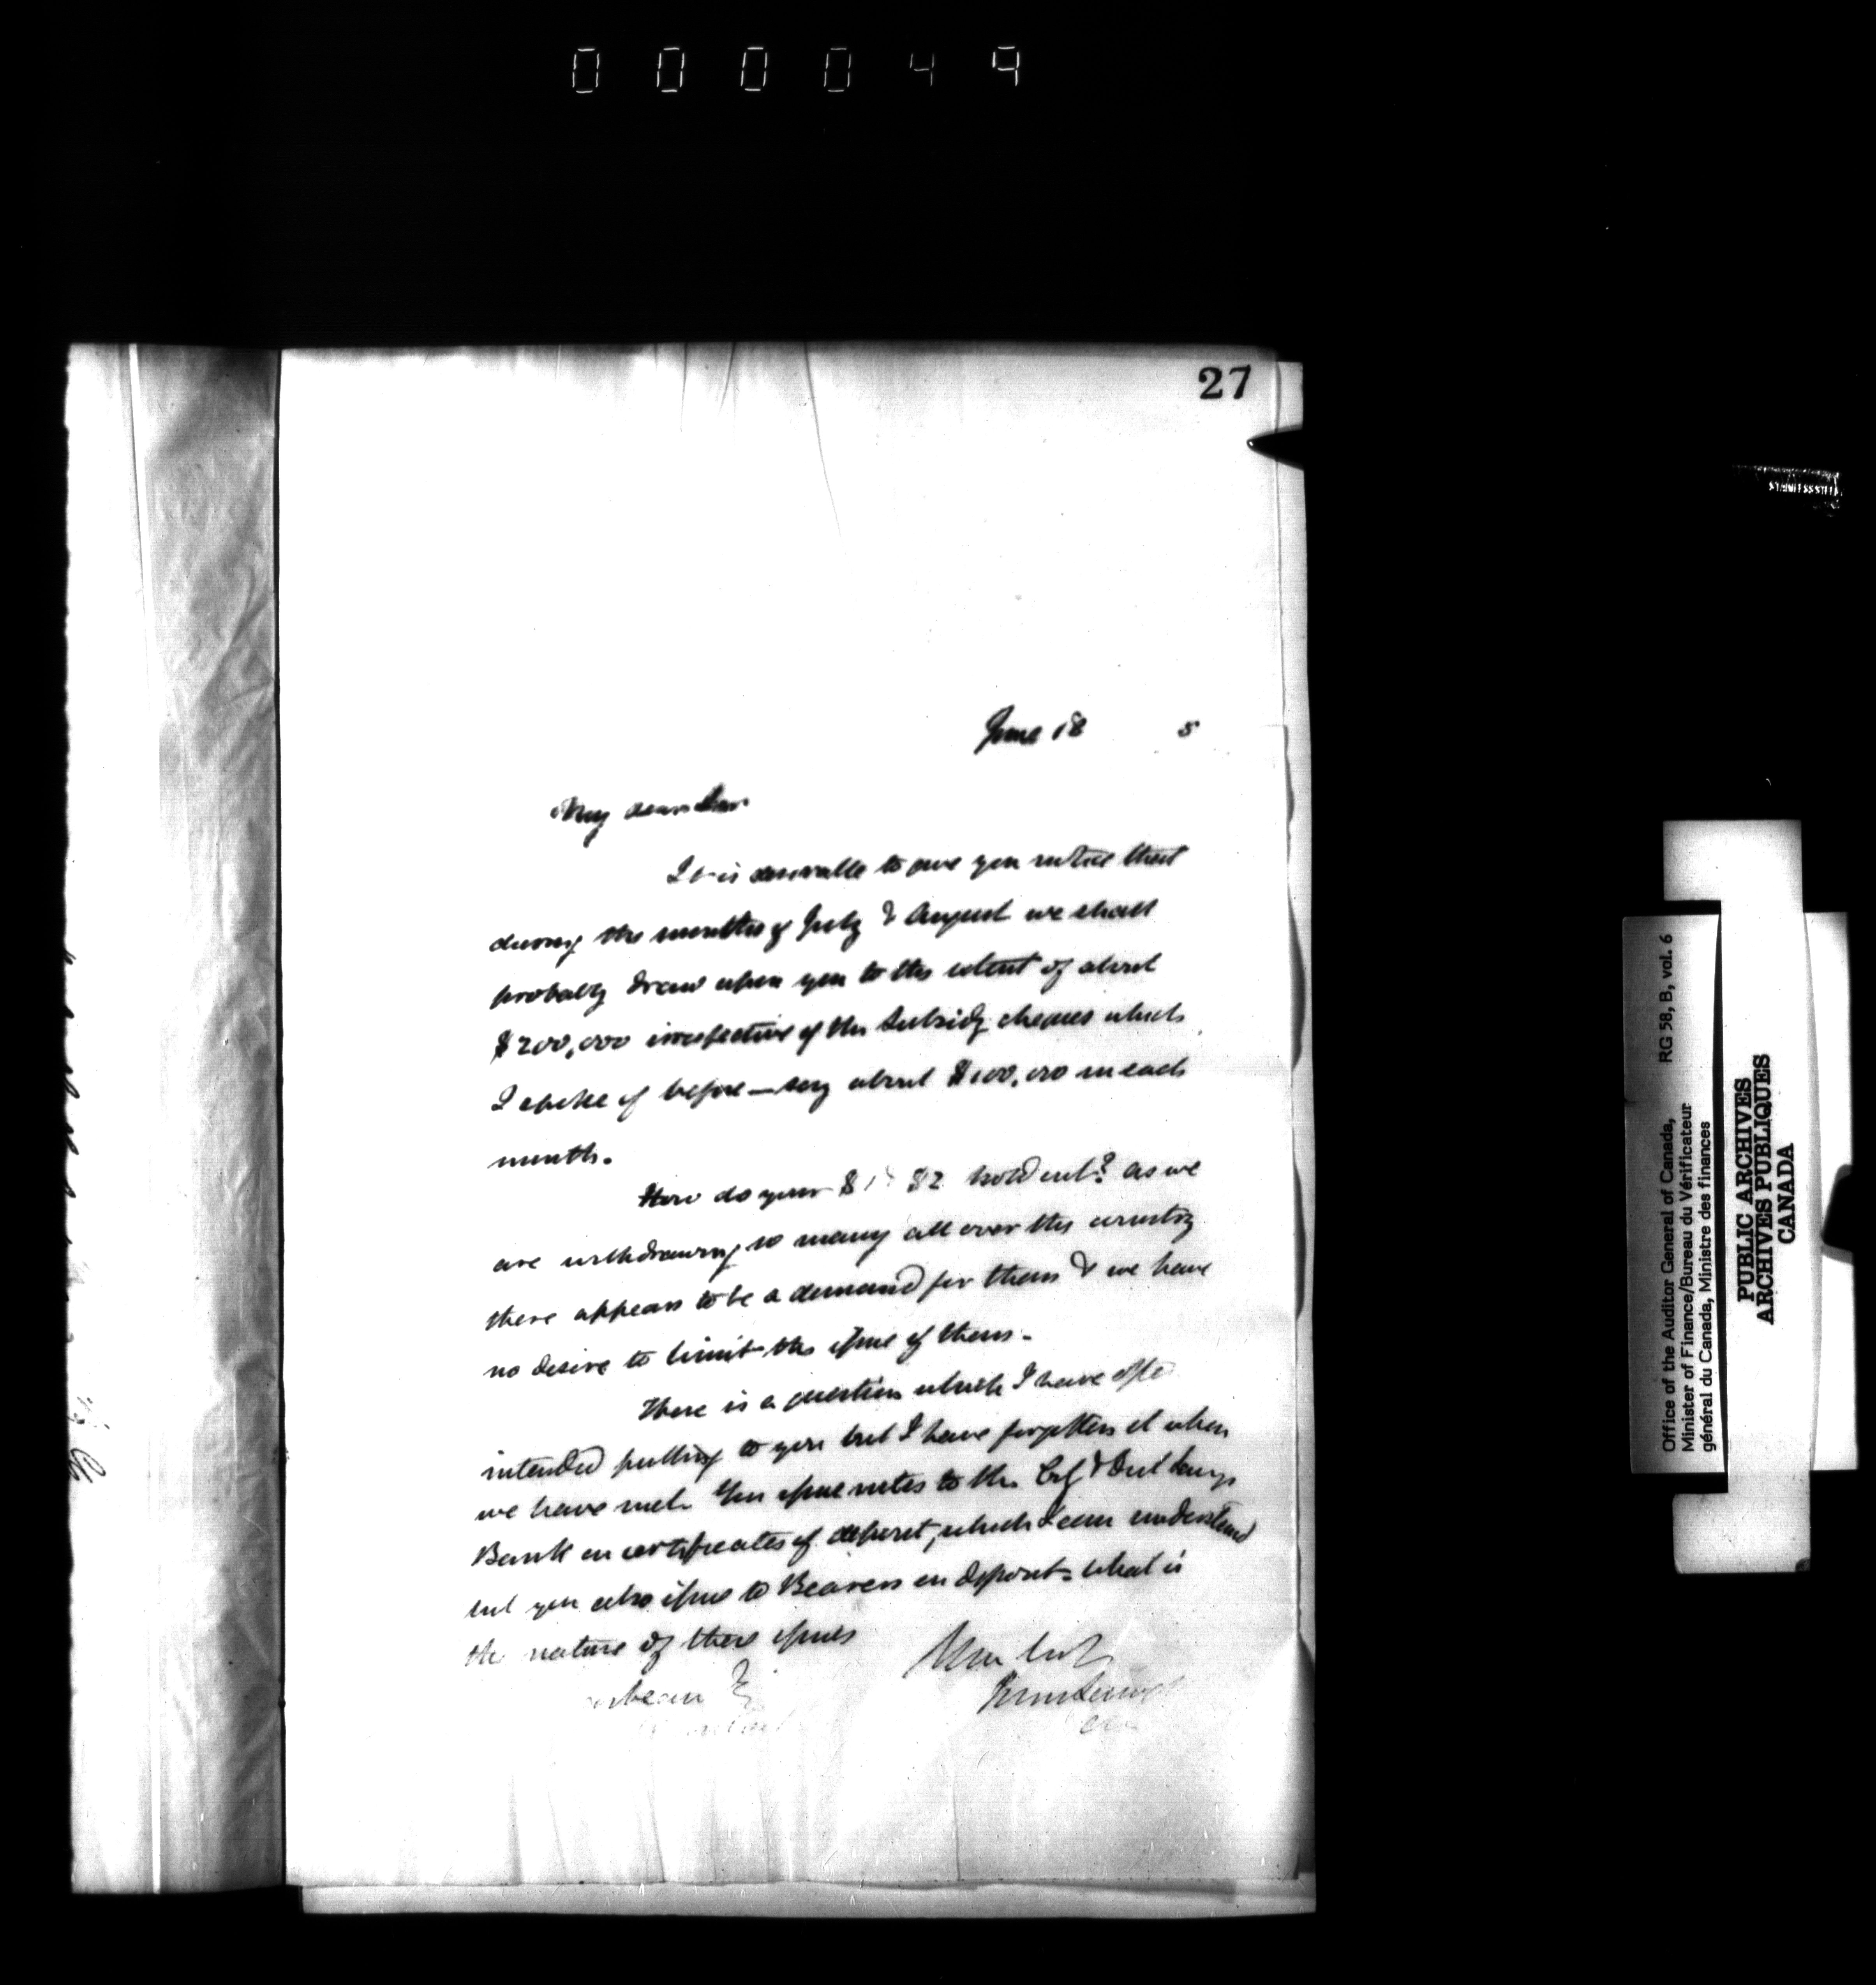 000049
27
June 18 5
My dear Sir
It is desirable to give you notice that
during the months of July & August we shall
probably draw upon you to the extent of about
$200,000 irrespective of the Subsidy cheques which
I spoke of before — say about $100,000 in each
month.
How do your $1 & $2 hold out? as we
are withdrawing so many all over the country
there appears to be a demand for them & we have
no desire to limit the issue of them.
There is a question which I have often
intended putting to you but I have forgotten it when
we have met. You issue notes to the City & Dist Savgs
Bank on certificates of deposit, which I can understand
but you also issue to Bearers on deposit - what is
the nature of these issues
Office of the Auditor General of Canada, RG 58, B, vol. 6
Minister of Finance/Bureau du Vérificateur
général du Canada, Ministre des finances
PUBLIC ARCHIVES
ARCHIVES PUBLIQUES
CANADA